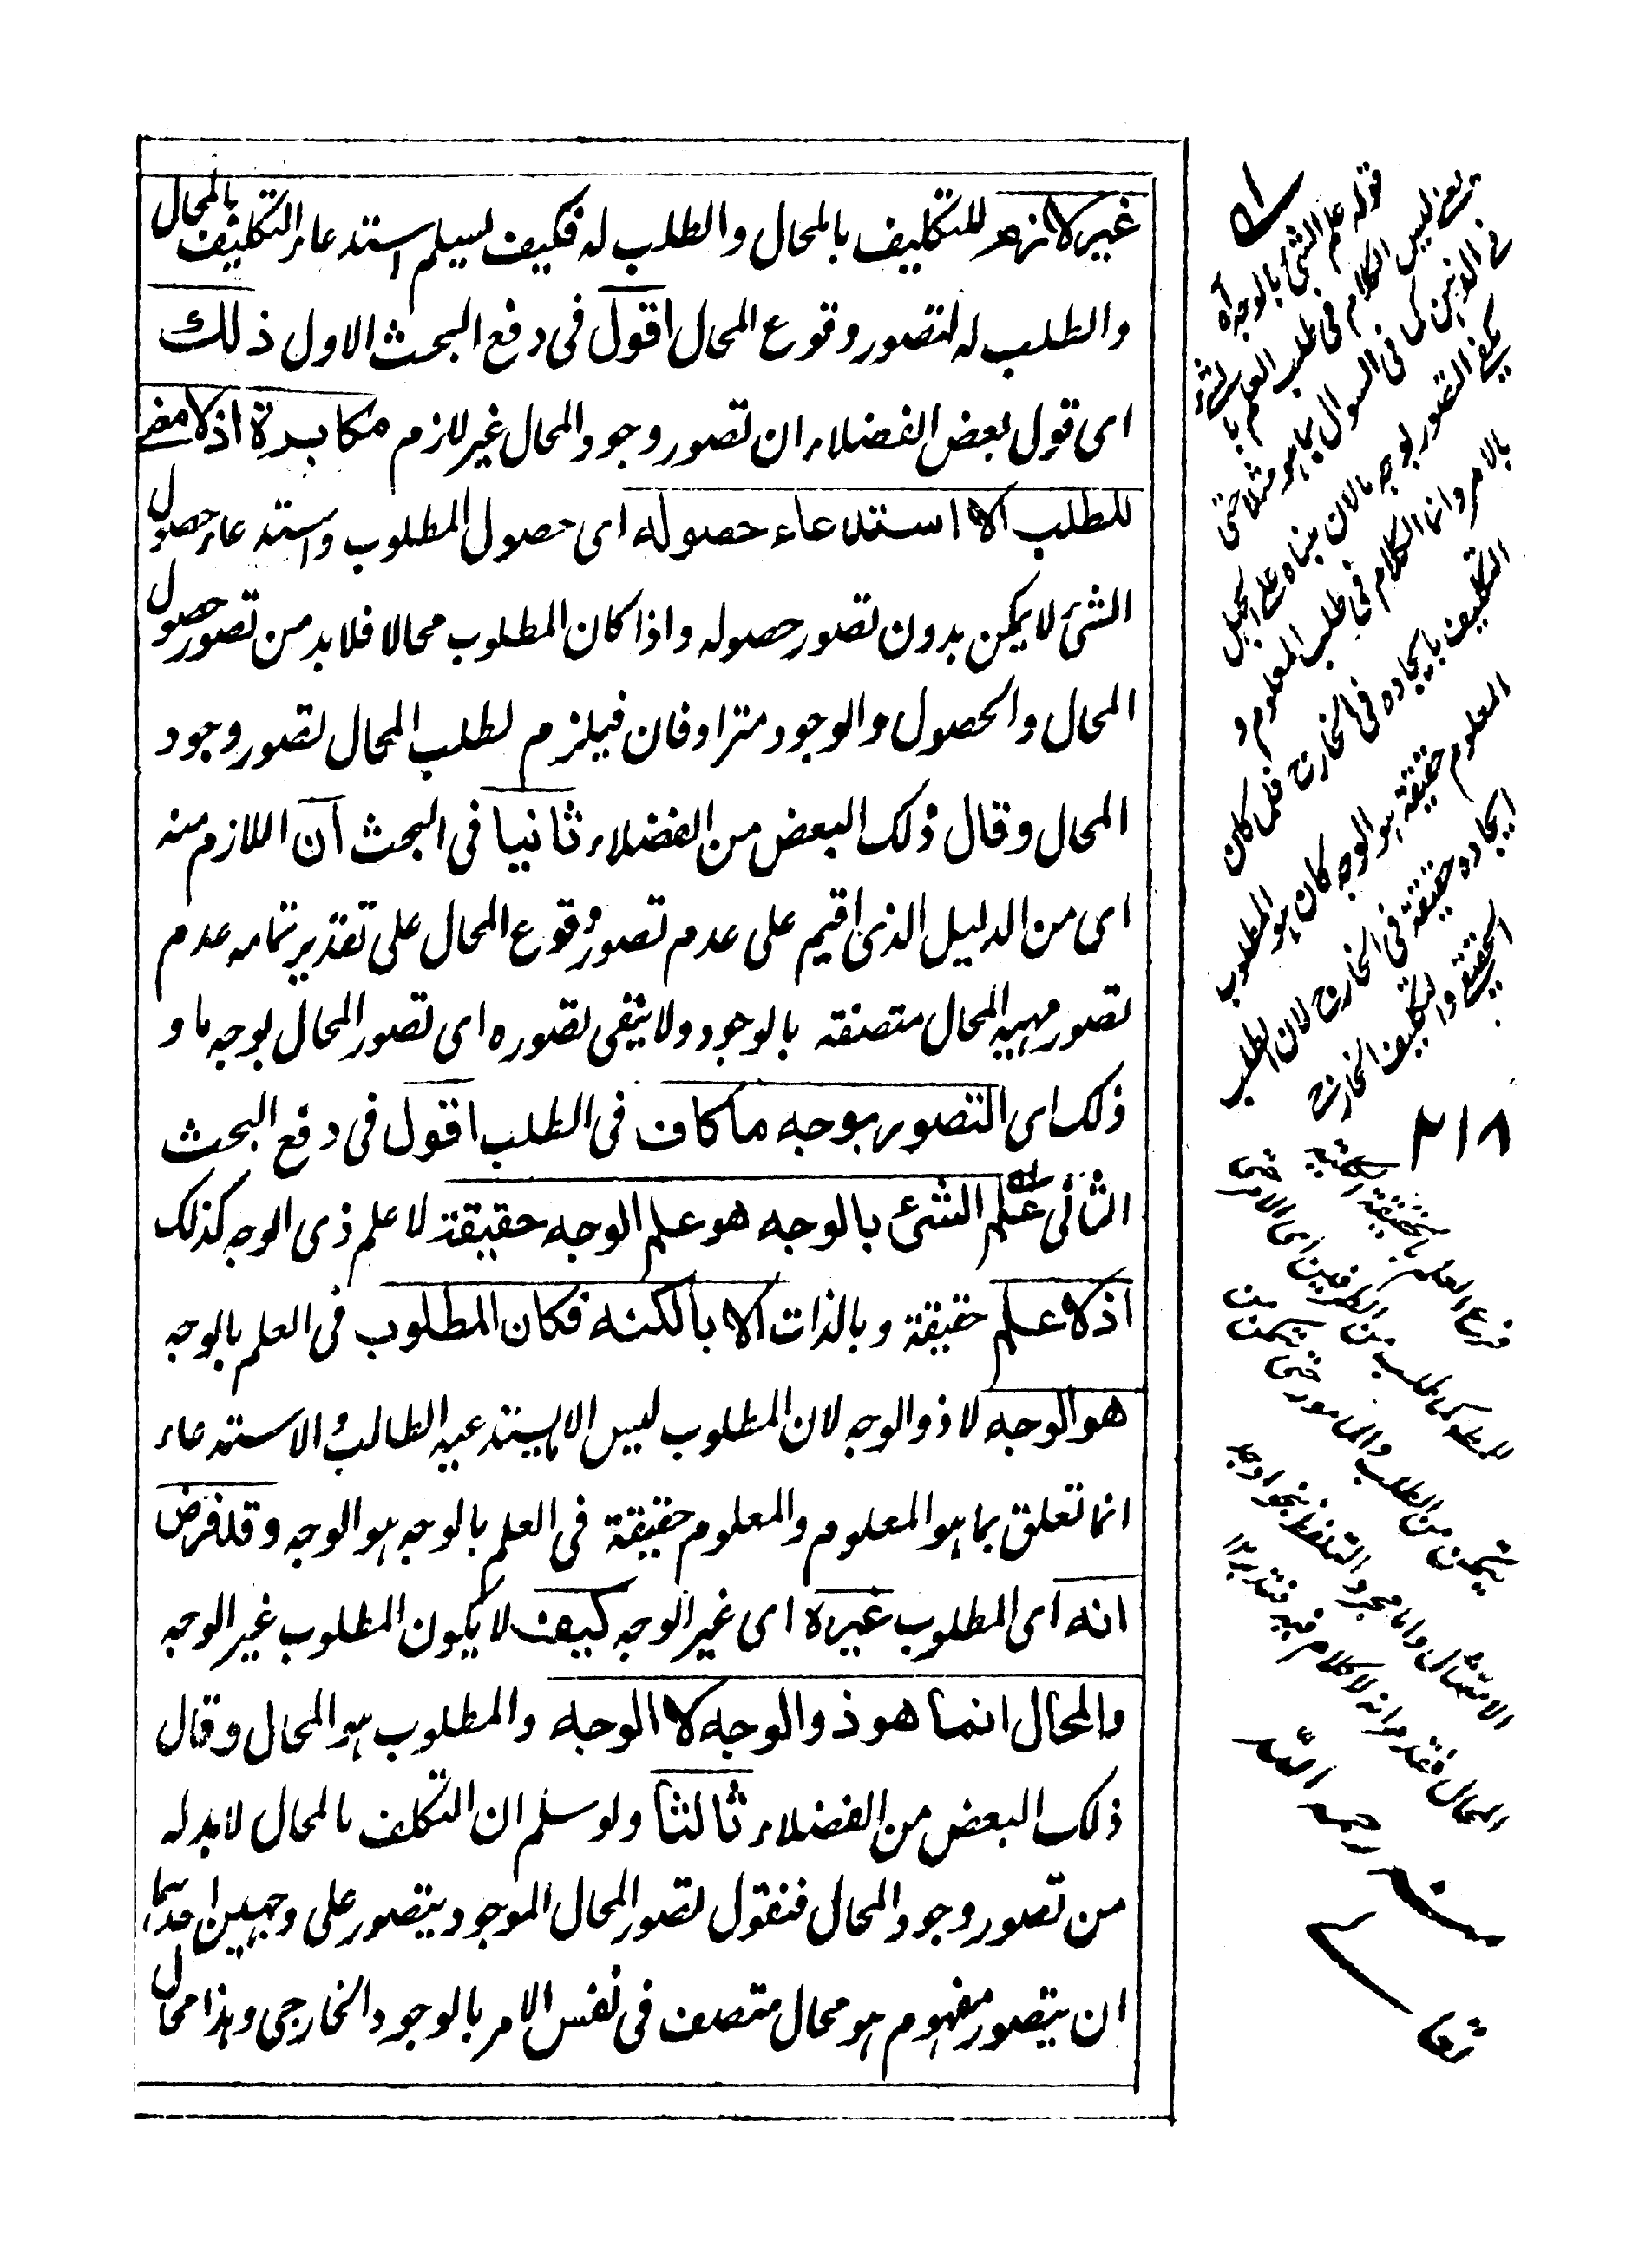 غير لازم للتكليف بالمحال والطلب له فكيف يسلم استدعاء التكليف بالمحال
والطلب له لتصور وقوع المحال اقول فى دفع البحث الاول ذلك
اى قول بعض الفضلاء ان تصور وجود المحال غير لازم مكابرة اذ لا معنى
للطلب الا استدعاء حصوله اى حصول المطلوب واستدعاء حصول
الشئ لا يمكن بدون تصور حصوله واذا كان المطلوب محالا فلا بد من تصور حصول
المحال والحصول والوجود مترادفان فيلزم لطلب المحال تصور وجود
المحال وقال ذلك البعض من الفضلاء ثانيا فى البحث ان اللازم منه
اى من الدليل الذى اقيم على عدم تصور وقوع المحال على تقدير تمامه عدم
تصور مهية المحال متصفة بالوجود ولا ينفى تصوره اى تصور المحال بوجه ما و
ذلك اى التصور بوجه ما كاف فى الطلب اقول فى دفع البحث
الثانى علم الشئ بالوجه هو علم الوجه حقيقة لا علم ذى الوجه كذلك
اذ لا علم حقيقة وبالذات الا بالكنه فكان المطلوب فى العلم بالوجه
هو الوجه لا ذو الوجه لان المطلوب ليس الا ما يستدعيه الطالب والاستدعاء
انما تعلق بما هو المعلوم والمعلوم حقيقة فى العلم بالوجه هو الوجه وقد فرض
انه اى المطلوب غيره اى غير الوجه كيف لا يكون المطلوب غير الوجه
والمحال انما هو ذو الوجه لا الوجه والمطلوب هو المحال وقال
ذلك البعض من الفضلاء ثالثا ولو سلم ان التكلف بالمحال لا بد له
من تصور وجود المحال فنقول تصور المحال الموجود يتصور على وجهين احدهما
ان يتصور مفهوم هو محال متصف فى نفس الامر بالوجود الخارجى وهذا محال
قوله علم الشئ بالوجه اه
يعنى ليس الكلام فى طلب العلم بالشئ
فى الذهن كما فى السوال بما هو مثلا حتى
يكفى التصور بوجه ما لان مبناه على الجهل
بالامر وانما الكلام فى طلب المعلوم و
التكليف بايجاده فى الخارج فلما كان
المعلوم حقيقة هو الوجه كان هو المطلوب
ايجاده حقيقة فى الخارج لان الطلب
الحقيقى والتكليف الخارج
٢١٨
فرع العلم بالحقيقة
من الطرفين اى الامر حتى
يتمكن من الطلب والمامور حتى يتمكن من
الامتثال واما مجرد التلفظ بنحو اوجد
المحال فقد مر انه لا كلام فيه فتدبر
منه رحمه الله
تعا